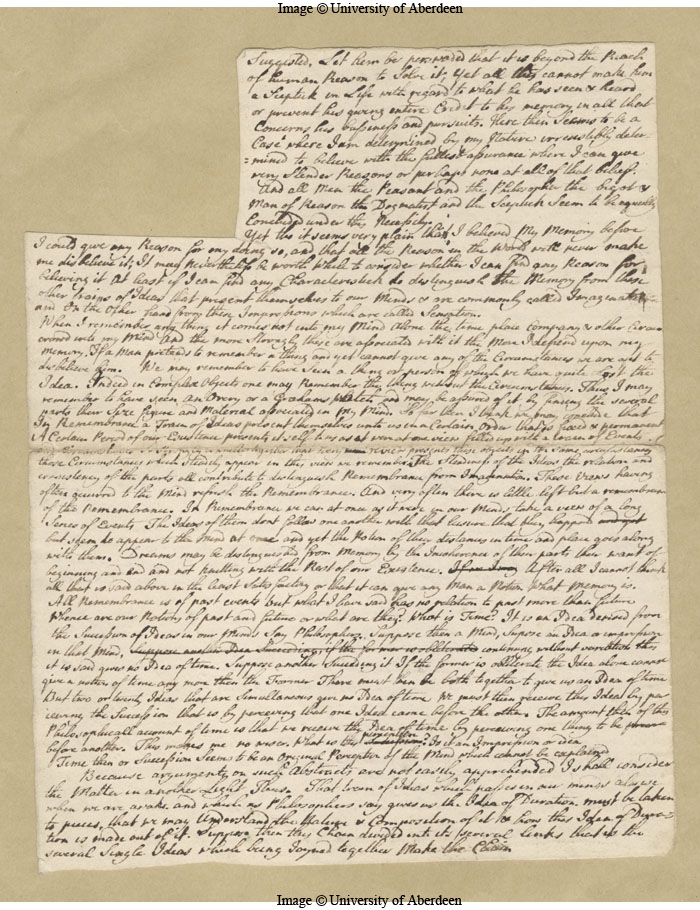 Image © University of Aberdeen
Suggested. Let them be perswaded that it is beyond the Reach
of human Reason to Solve it, yet all this cannot make him
a Sceptick in Life with regard to what he has seen & heard
or prevent his giving entire Credit to his memory in all that
Concerns his bussiness and pursuits. Here then Seems to be a
Case where I am determined by my Nature irresistibly deter
=mined to believe with the fullest assurance where I can give
very Slender Reasons or perhaps none at all of that belief.
And all Men the Peasant and the Philosopher the bigot &
Man of Reason the Dogmatist and the Sceptick Seem to be equally
Concluded under this Necessity.
Yet tho it seems very plain that I believed My Memory before
I could give my Reason for my doing so, and that all the Reason in the World will never make
me disbelieve it; It may nevertheless be worth while to consider whether I can find any Reason for
believing it At least if I can find any Characteristick to distinguish the Memory from those
other trains of Ideas that present themselves to our Minds & are commonly called Imagination
and On the Other hand from those Impressions which are called Sensation.
When I remember any thing it comes not into my Mind alone the time, place Company & other Circum
crowd into my Mind and the more Strongly these are associated with it the More I depend upon my
memory. If a Man pretends to remember a thing and yet cannot give any of the Circumstances we are apt to
disbelieve him. We may remember to have Seen a thing or person of which we have quite lost the
Idea. Indeed in Complex Objects one may Remember the thing without the Circumstances. Thus I may
remember to have seen an Orery or a Grahams and may be assured of it by having the several
parts their Size figure and Material associated in my Mind. So far then I think we may conclude that
In Remembrance a Train of Ideas present themselves unto us in a Certain Order that is fixed & permanent
A Certain Period of our Existence presents it self to us as it were at one view filled up with a train of Events
review presents those objects in the same
those Circumstances which Steadily appear in this view we remember. The Steadiness of the Ideas the relation and
consistency of the parts all contribute to distinguish Remembrance from Imagination. These Views having
often occurred to the Mind refresh the Remembrance. And very often there is little left but a remembrance
of the Remembrance. In Remembrance we can at once as it were in our Minds take a view of a long
Series of Events. The Ideas of them dont follow one another with that leasure that they happend
but seem to appear to the Mind at once and yet the Notion of their distances in time and place goes along
with them. Dreams may be distinguished from Memory by the Incoherence of their parts their want of
beginning and End and not knitting with the Rest of our Existence. After all I cannot think
all that is said above in the least Satisfactory or that it can give any Man a Notion What Memory is.
All Remembrance is of past events but what I have said has no relation to past more than future
Whence are our Notions of past and future or what are they? What is Time? It is an Idea derived from
the Succession of Ideas in our Minds Say Philosophers. Suppose then a Mind, Supose an Idea or impression
in that Mind, Suppose another Idea Succeeding; if the former is obliterated continuing without variation this
it is said gives no Idea of time. Suppose another Succeeding it If the former is obliterate the Idea alone cannot
give a notion of time any more than the Former There must then be both together to give us an Idea of time
But two or twenty Ideas that are Simultaneous give no Idea of time We must then receive this Idea by per
ceiving the Succession that is by perceiving that one Idea came before the other. The amount then of this
Philosophicall account of time is that we receive the Idea of time by perceiving one thing to be
before another. This makes me no wiser. What is this perception? Is it an Impression or Idea.
Time then or Succession Seems to be an Original Perception of the Mind which cannot be explained
Because arguments on such Abstracts are not easily apprehended I shall consider
the Matter in another Light Thus. That train of Ideas which passes in our minds always
when we are awake and which as Philosophers say gives us the Idea of Duration must be taken
to pieces, that we may Understand the Nature & Composition of it & how this Idea of Dura-
tion is made out of it. Suppose then this Chain divided into its several links that is the
several Single Ideas which being Joyned together Make the Chain
Image © University of Aberdeen